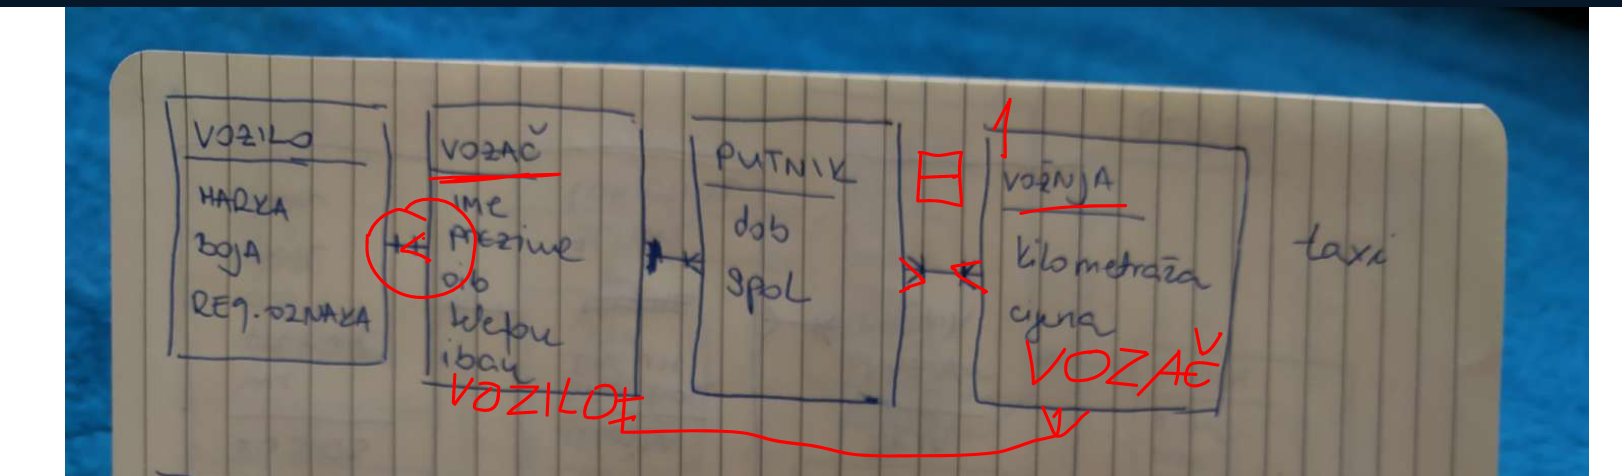 VOZILO
MARKA
BOJA
REG. OZNAKA
VOZAČ
ime
prezime
oib
telefon
iban
VOZILO
PUTNIK
dob
spol
1
VOŽNJA
kilometraža
cijena
VOZAČ
taxi